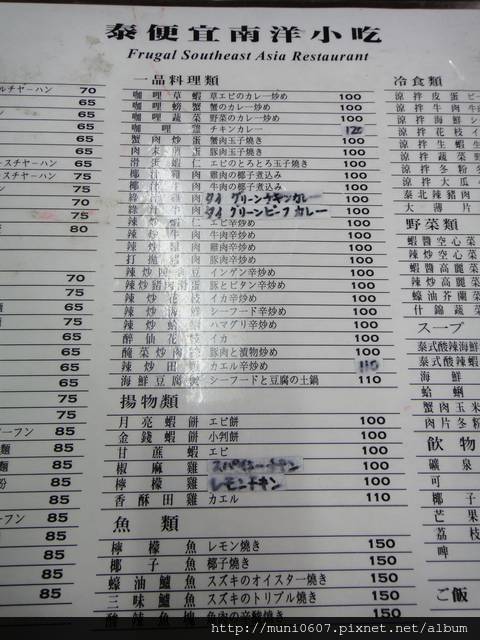 泰便宜南洋小吃
Frugal Southeast Asia Restaurant
ルチヤーハン 70
65
65
65
65
スチャーハン 65
スチャーハン 75
75
80
70
75
75
65
65
65
65
75
75
ーフン 85
85
85
85
ーフン 85
85
85
85
一品料理類
咖哩草蝦 草エビのカレー炒め 100
咖哩螃蟹 蟹のカレー炒め 100
咖哩蔬菜 野菜のカレー炒め 100
咖哩雞 チキンカレー 120
蟹肉炒蛋 蟹肉玉子焼き 100
肉末煎蛋 豚肉玉子焼き 100
滑蛋蝦仁 エビのとろとろ玉子焼き 100
椰汁雞肉 雞肉の椰子煮込み 100
椰汁牛肉 牛肉の椰子煮込み 100
肉 タイ グリーンチキンカレー 100
肉 タイ グリーンビーフ カレー 100
辣炒蝦仁 エビ辛炒め 100
辣炒牛肉 牛肉辛炒め 100
辣炒雞肉 雞肉辛炒め 100
打拋豬肉 豚肉辛炒め 100
辣炒四季豆 インゲン辛炒め 100
辣炒豬肉滑蛋 豚とピタン辛炒め 100
辣炒花枝 イカ辛炒め 100
辣炒海鮮 シーフード辛炒め 100
辣炒蛤蜊 ハマグリ辛炒め 100
醉仙花枝 イカ 100
醃菜炒肉 豚肉と漬物炒め 100
辣炒田雞 カエル辛炒め 110
海鮮豆腐煲 シーフードと豆腐の土鍋 110
揚物類
月亮蝦餅 エビ餅 100
金錢蝦餅 小判餅 100
甘蔗蝦 エビ 100
椒麻雞 スパイシーチキン 100
檸檬雞 レモンチキン 100
香酥田雞 カエル 110
魚類
檸檬魚 レモン焼き 150
椰子魚 椰子焼き 150
蠔油鱸魚 スズキのオイスター焼き 150
三味鱸魚 スズキのトリプル焼き 150
酸辣魚塊 魚肉の辛酸焼き 150
冷食類
涼拌皮蛋 ピー
涼拌牛肉 牛肉
涼拌海鮮 シー
涼拌花枝 イカ
涼拌生蝦 生
涼拌蔬菜 野
涼拌冬粉 多
涼拌大瓜
泰北辣豬肉
大薄片
野菜類
蝦醬空心菜
辣炒空心菜
蝦醬高麗菜
辣炒高麗菜
蠔油芥蘭
什錦蔬菜
スープ
泰式酸辣海鮮
泰式酸辣蝦
海鮮
蛤蜊
蟹肉玉米
肉片冬粉
飲物
礦泉
可
椰子
芒果
荔枝
啤
ご飯
http://muni0607.pixnet.net/album